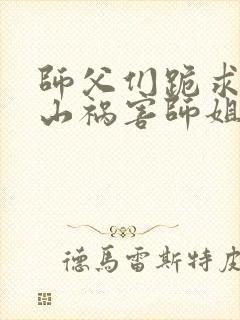 師父们跪求
山祸害師姐
德馬雷斯特皮